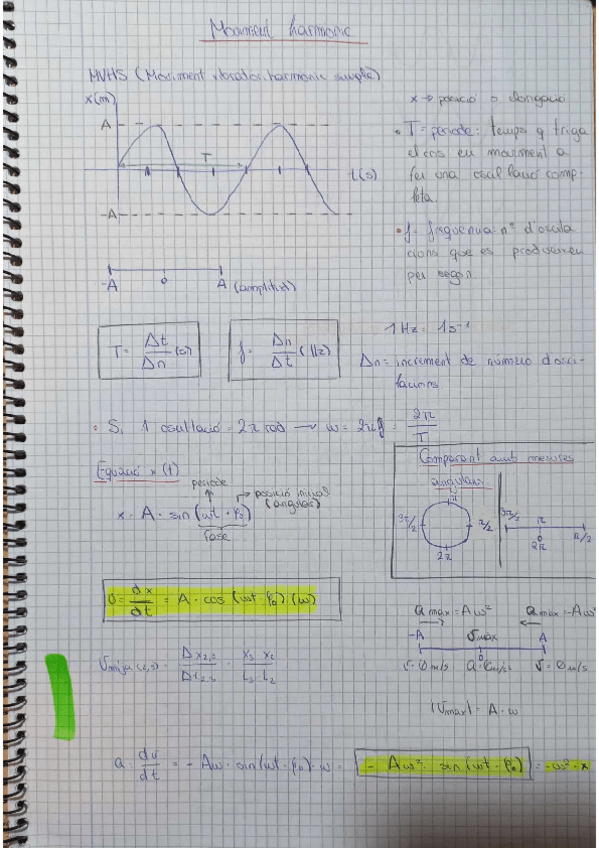 Moviment harmonic
MVHS (Moviment vibratori harmonic simple)
x(m)
A
T
t(s)
-A
x → posició o elongació
• T = periode: temps q triga
el cos en moviment a
fer una oscil·lació comp-
leta.
• f = frequencia: nº d'oscil·la
cions que es produeixen
per segon.
-A 0 A (amplitud)
T = Δt/Δn (s)
f = Δn/Δt (Hz)
1Hz = 1s⁻¹
Δn = increment de número d'osci-
lacions
• Si 1 oscil·lació = 2π rad → ω = 2πf = 2π/T
Equació x(t)
periode
posició inicial
(angular)
x = A · sin(ωt + φ₀)
fase
Comparant amb mesures
angulars
π
3π/2
π/2
2π
3π/2
π
0
2π
π/2
v = dx/dt = A · cos(ωt + φ₀) · (ω)
a max = Aω²
a max = -Aω²
-A
vmax
A
0
v = 0 m/s
v = 0 m/s
|Vmax| = A · ω
Vmitja (2,3) = Δx2,3/Δt2,3 = x3 x2/t3 t2
a = dv/dt = - Aω · sin(ωt + φ₀) · ω = - Aω² · sin(ωt + φ₀) = -ω² · x